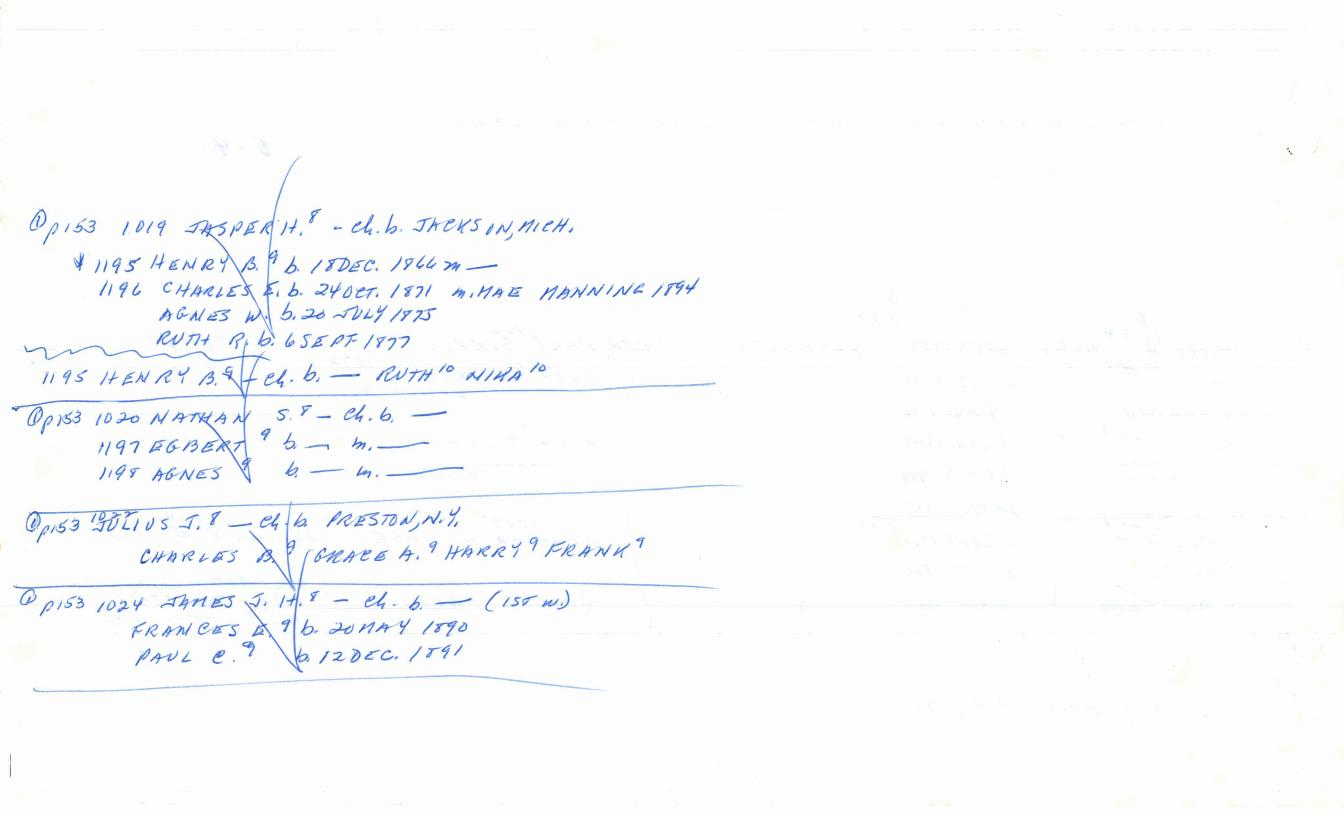 ① p153 1019 JASPER H.⁸ - ch. b. JACKSON, MICH.
1195 HENRY B.⁹ b. 18 DEC. 1866 m —
1196 CHARLES E. b. 24 OCT. 1871 m. MAE MANNING 1894
AGNES W. b. 20 JULY 1875
RUTH R. b. 6 SEPT 1877
1195 HENRY B.⁹ - ch. b. — RUTH¹⁰ NINA¹⁰
① p153 1020 NATHAN S.⁸ - ch. b. —
1197 EGBERT ⁹ b. — m. —
1198 AGNES ⁹ b. — m. —
① p153 1022 JULIUS J.⁸ — ch b. PRESTON, N.Y.
CHARLES B.⁹ GRACE A.⁹ HARRY⁹ FRANK⁹
① p153 1024 JAMES J. H.⁸ - ch. b. — (1ST m)
FRANCES E.⁹ b. 20 MAY 1890
PAUL C.⁹ b. 12 DEC. 1891